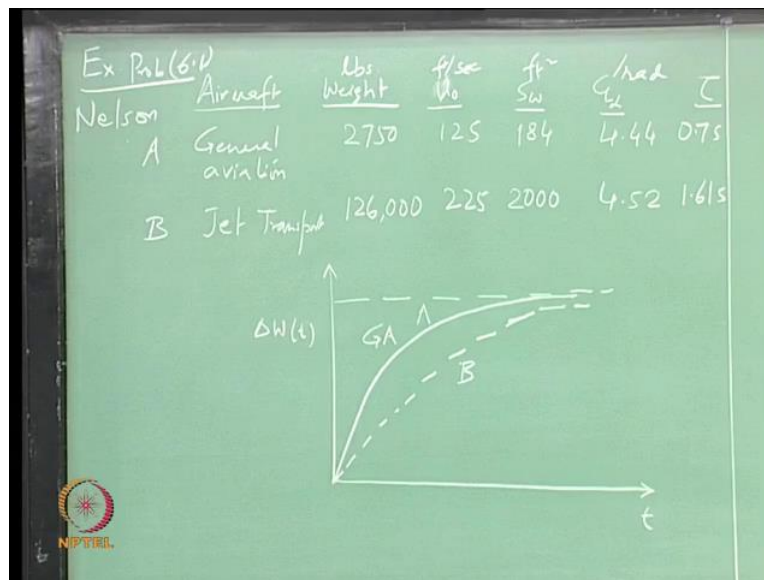 Ex Prob (6.1)
Nelson
Aircraft lbs Weight ft/sec U₀ ft² Sw /rad CLα τ
A General aviation 2750 125 184 4.44 0.7s
B Jet Transport 126,000 225 2000 4.52 1.61s
ΔW(t)
GA A
B
t
NPTEL